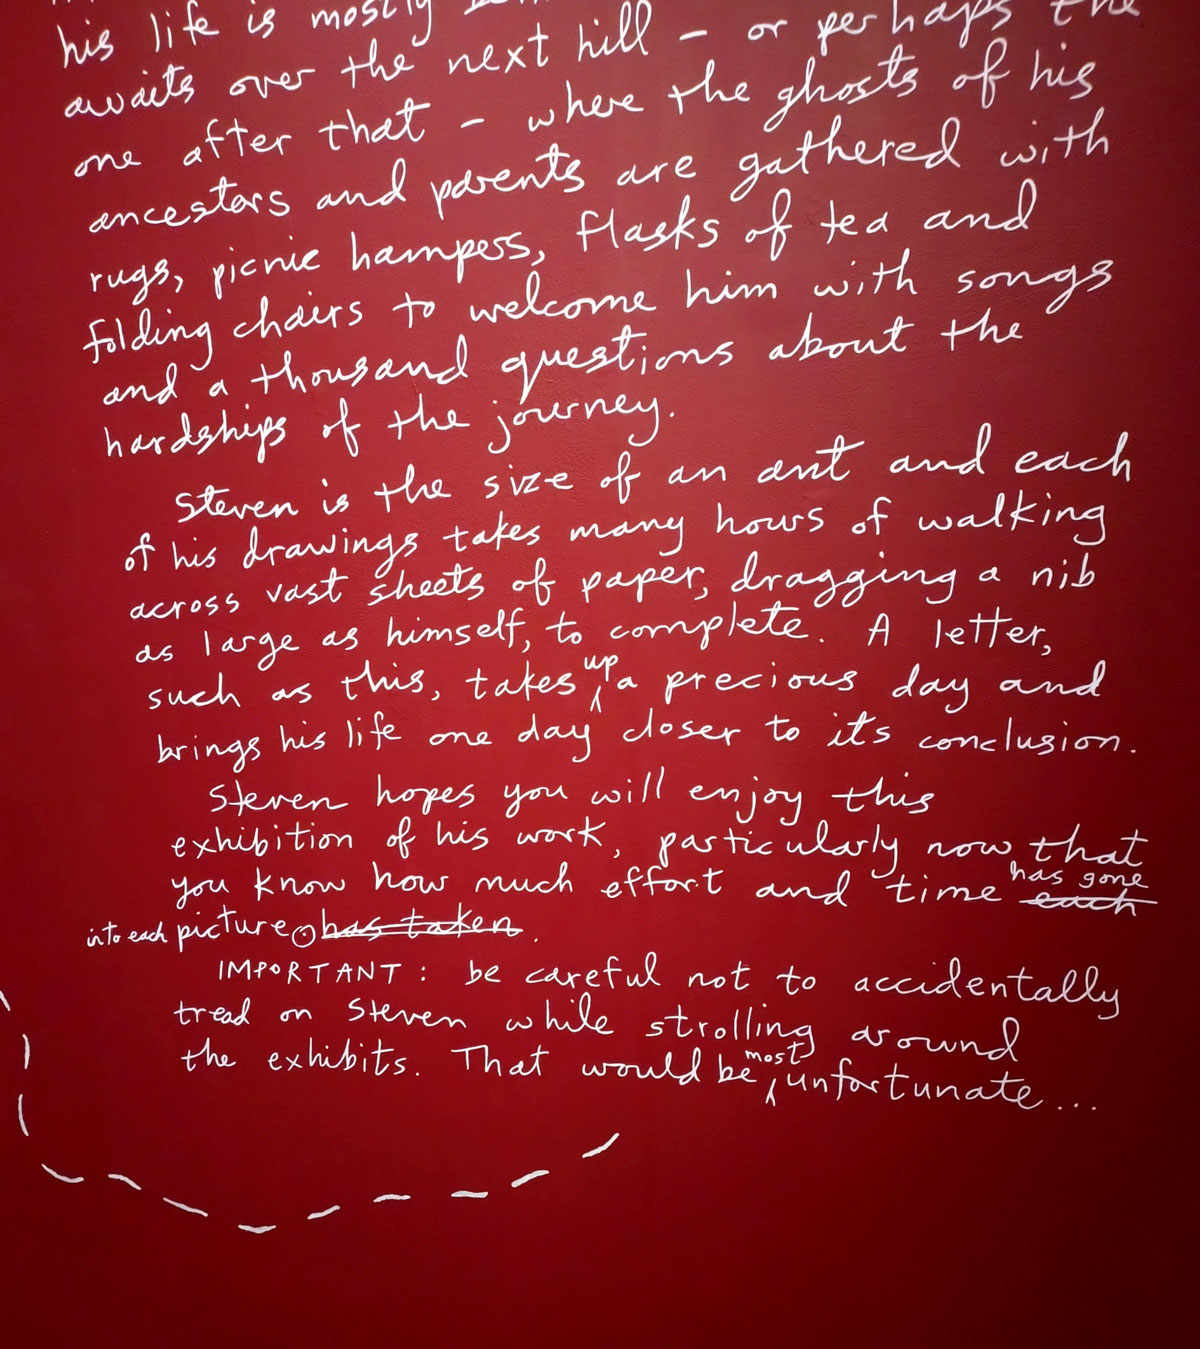 his life is mostly
awaits over the next hill – or perhaps the
one after that – where the ghosts of his
ancestors and parents are gathered with
rugs, picnic hampers, flasks of tea and
folding chairs to welcome him with songs
and a thousand questions about the
hardships of the journey.
Steven is the size of an ant and each
of his drawings takes many hours of walking
across vast sheets of paper, dragging a nib
as large as himself, to complete. A letter,
such as this, takes up a precious day and
brings his life one day closer to it's conclusion.
Steven hopes you will enjoy this
exhibition of his work, particularly now that
you know how much effort and time has gone each
into each picture. has taken.
IMPORTANT: be careful not to accidentally
tread on Steven while strolling around
the exhibits. That would be most unfortunate...